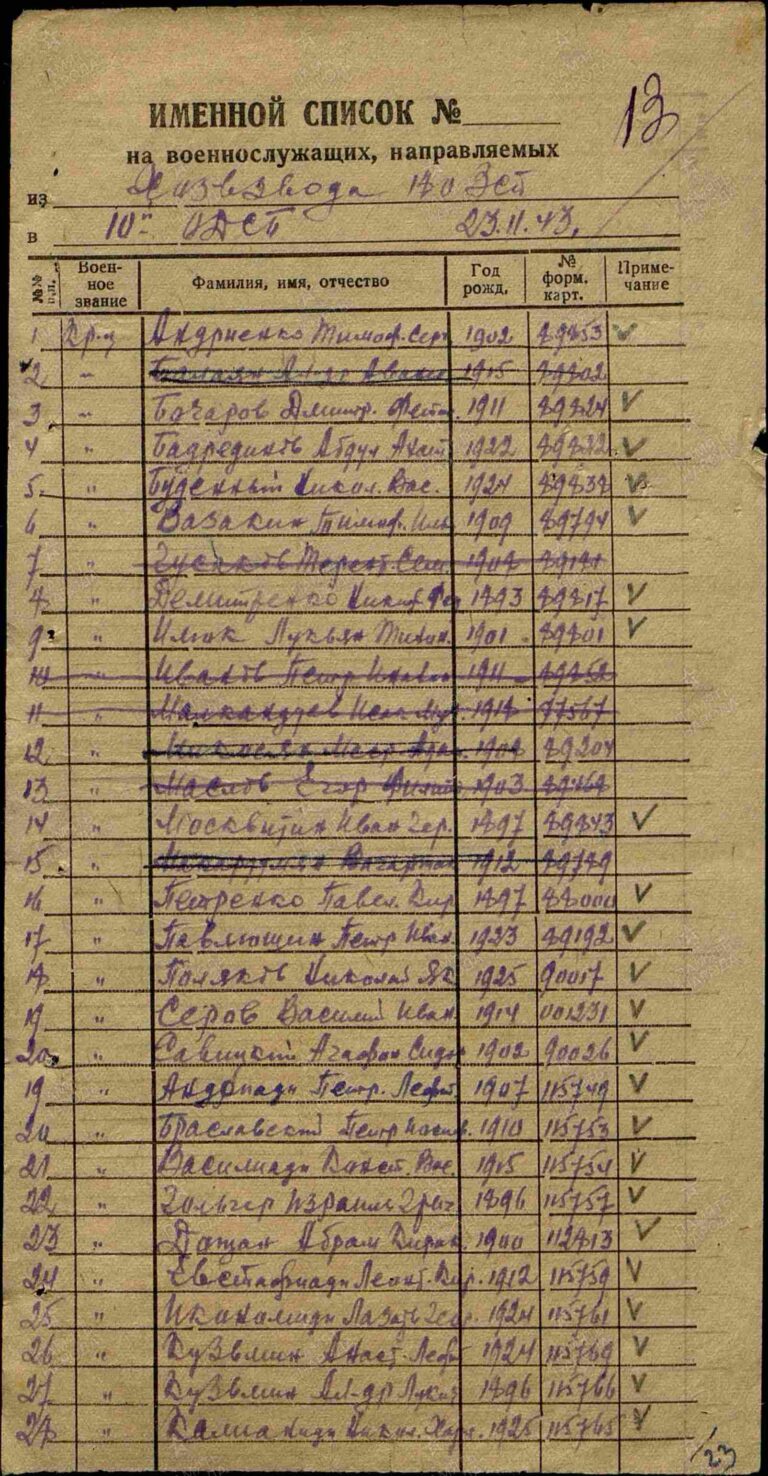 13
ИМЕННОЙ СПИСОК №
на военнослужащих, направляемых
из Хозвзвода 180 ЗСП
в 10й ОДСП 23.11.43.
№№ п.п. Воен-ное звание Фамилия, имя, отчество Год рожд. № форм. карт. Приме-чание
1 Кр-ц Андриенко Тимоф. Серг 1902 89853
2 " 1915 89802
3 " Бочаров Дмитр. 1911 89824
4 " Бадрединов Абдул 1922 89832
5. " Буденный Никол. Вас. 1924 89838
6 " Вазакин Тимоф. Иль 1909 89794
7 " Гусаков Терент. Сем 1908
8 " Демитренко Никит. Фед 1893 89817
9 " Илюк Лукьян Тихон. 1901 89801
10 " Иванов Петр 1911
11 " 1918 87567
12 " 1908 89204
13 " Маслов Егор Филип 1903 89868
14 " Москвитин Иван Гер. 1897 89843
15 " 1912 89789
16 " Петренко Павел. Кир 1897 88000
17 " Павлющин Петр Иван. 1923 89192
18 " Поляков Николай Як 1925 90017
19 " Серов Василий Иван 1914 001231
20 " Савицкий Агафон Сидор 1902 90026
19 " Андониади Петр. Леонт. 1907 115749
20 " Браславский Петр Иосиф. 1910 115753
21 " Василиади Конст. Вас. 1915 115754
22 " Гольгер Израиль 1896 115757
23 " Абрам 1900 112813
24 " Евстафиади Леонт. Кир. 1912 115759
25 " Икономиди Лазарь Геор. 1924 115761
26 " Кузьмин Анаст. 1924 115769
27 " Кузьмин Ал-др Лукич 1896 115766
28 " Никол. Хар. 1925 115765
23